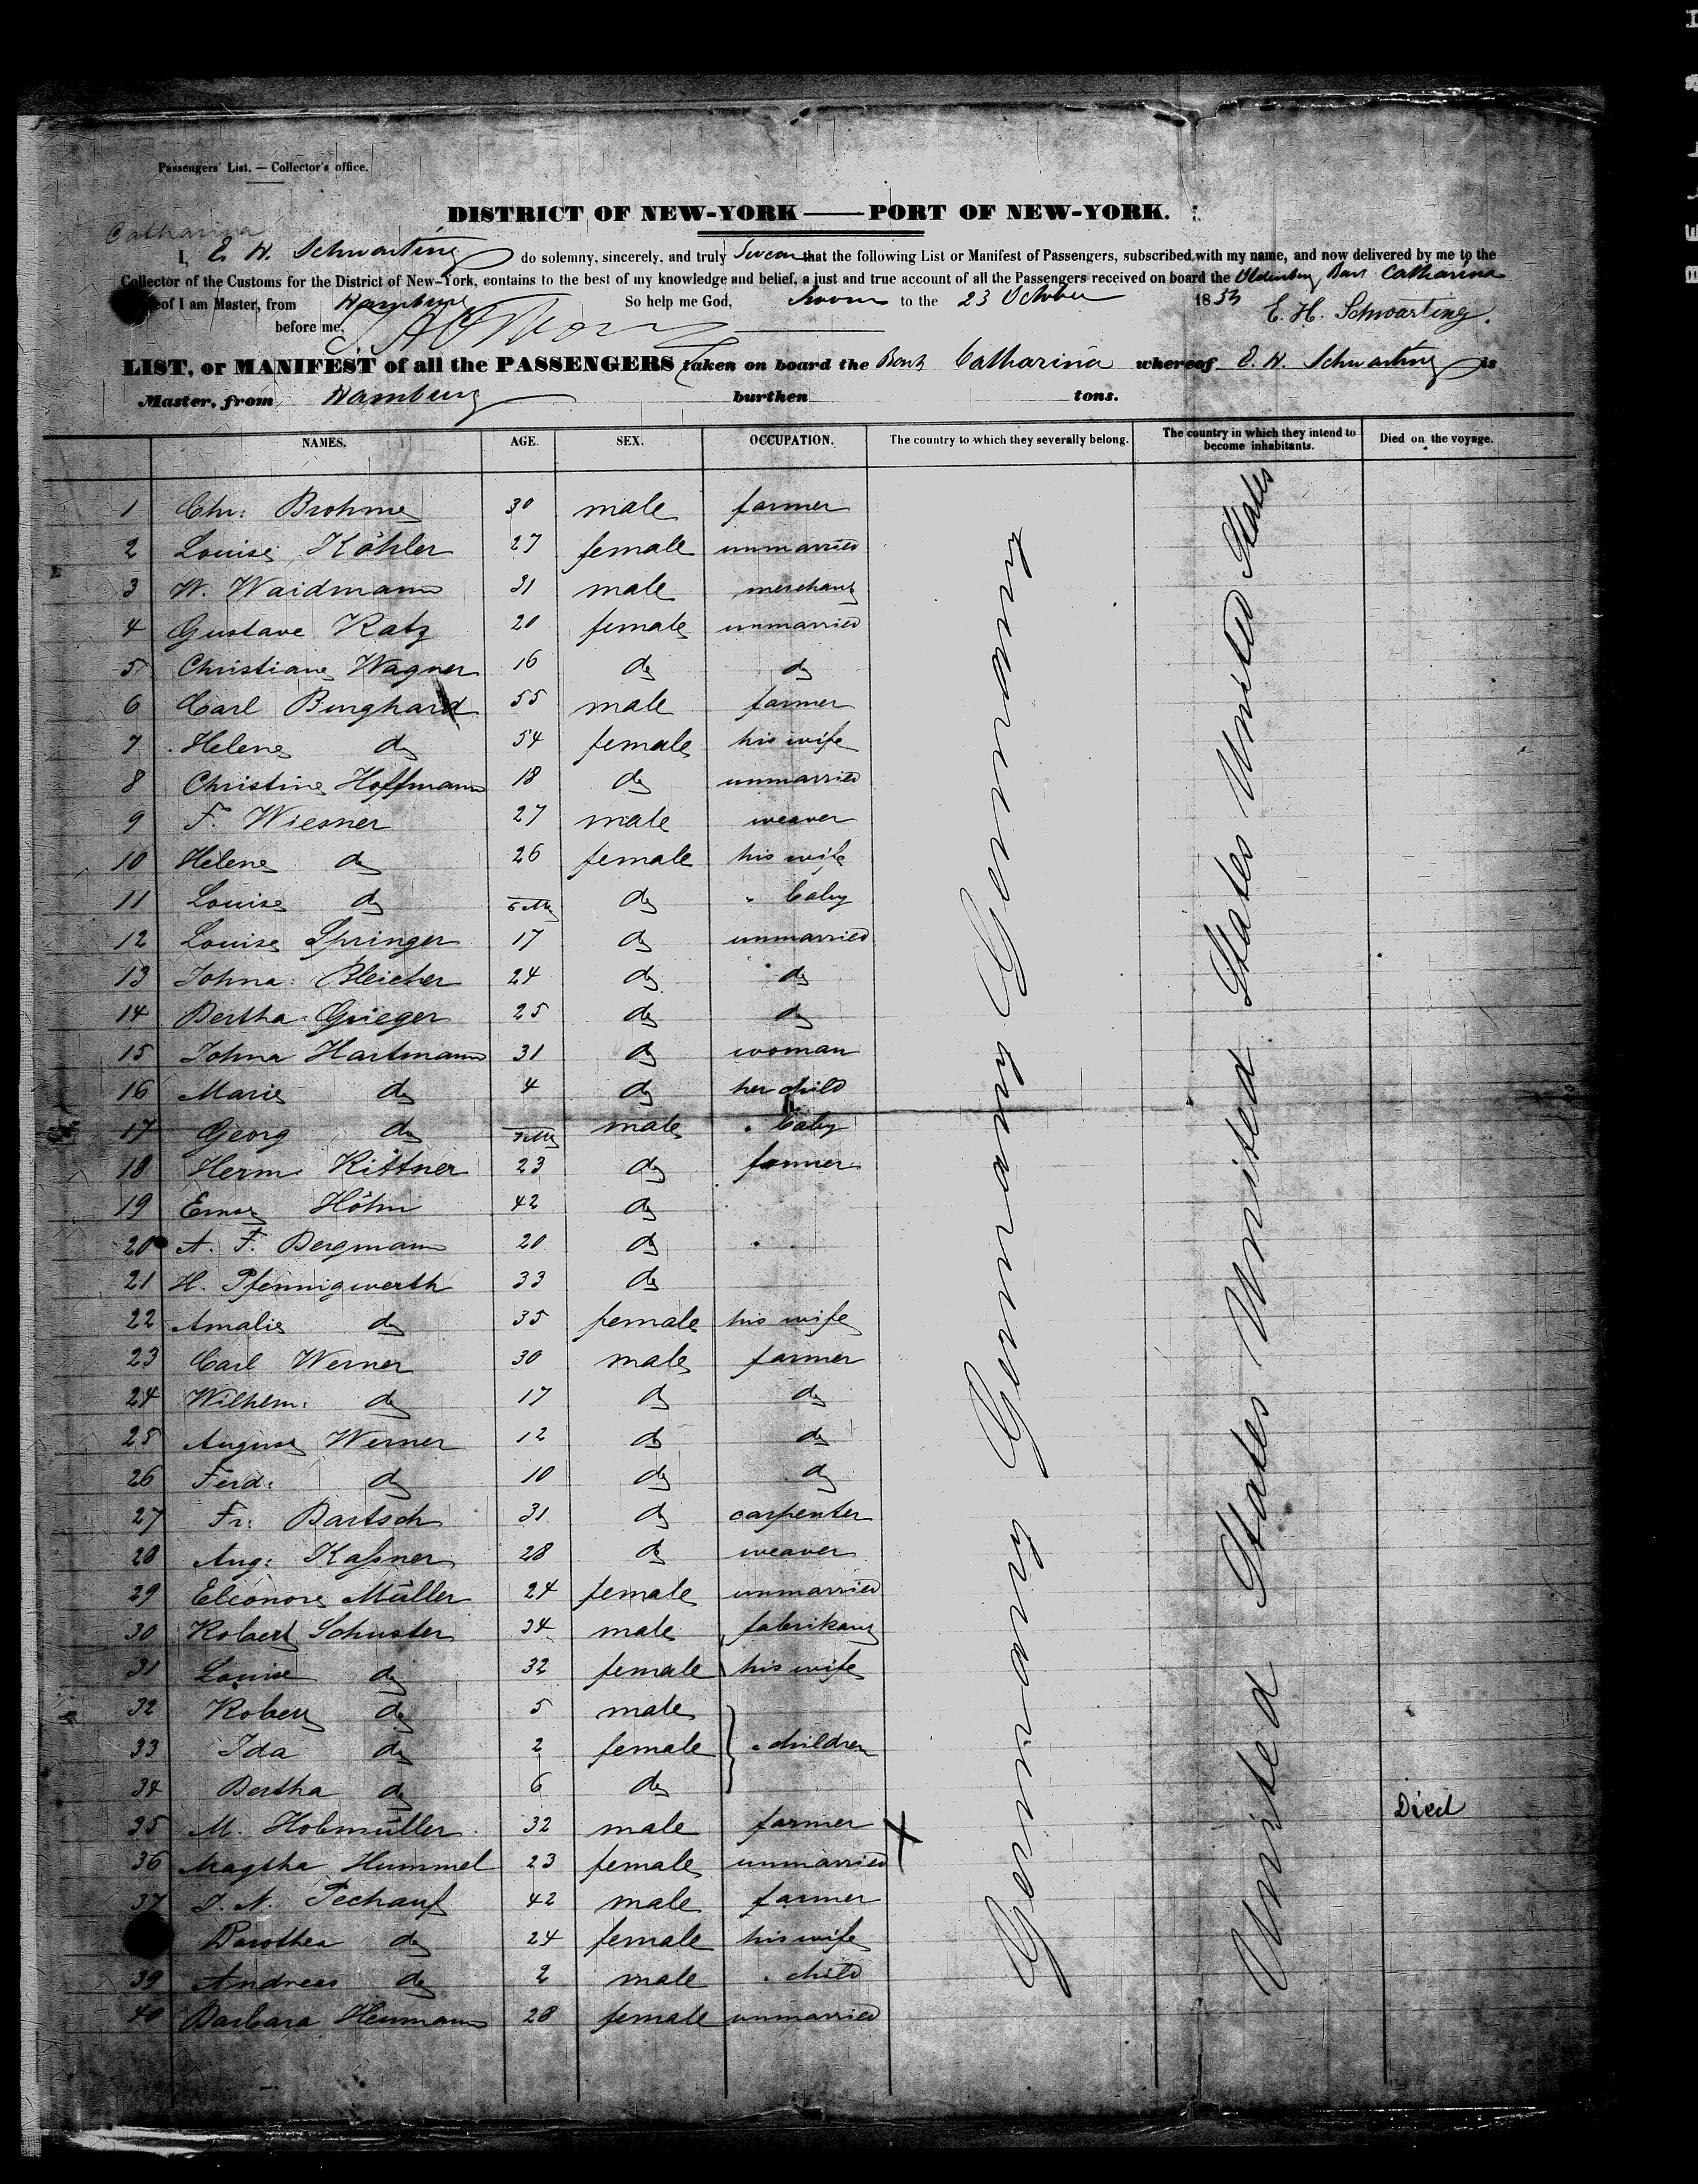 Passengers' List. — Collector's office.
DISTRICT OF NEW-YORK — PORT OF NEW-YORK.
Catharina
I, E. H. Schwarting do solemny, sincerely, and truly swear that the following List or Manifest of Passengers, subscribed with my name, and now delivered by me to the
Collector of the Customs for the District of New-York, contains to the best of my knowledge and belief, a just and true account of all the Passengers received on board the Oldenburg Bark Catharina
of I am Master, from Hamburg So help me God, Sworn to the 23 October 1853 E. H. Schwarting.
before me,
LIST, or MANIFEST of all the PASSENGERS taken on board the Bark Catharina whereof E. H. Schwarting is
Master, from Hamburg burthen tons.
NAMES. AGE. SEX. OCCUPATION. The country to which they severally belong. The country in which they intend to become inhabitants. Died on the voyage.
1 Chr: Brohme 30 male farmer
2 Louise Köhler 27 female unmarried
3 W. Waidmann 31 male merchant
4 Gustave Katz 20 female unmarried
5 Christiane Wagner 16 do do
6 Carl Burghard 55 male farmer
7 Helene do 54 female his wife
8 Christine Hoffmann 18 do unmarried
9 F. Wiesner 27 male weaver
10 Helene do 26 female his wife
11 Louise do do " baby
12 Louise Springer 17 do unmarried
13 Johna: Bleicher 24 do do
14 Bertha Grieger 25 do do
15 Johna Hartmann 31 do woman
16 Marie do 4 do her child
17 Georg do male " baby
18 Herm. Kittner 23 do farmer
19 Ernst Höhn 42 do
20 A. F. Bergmann 20 do
21 H. Pfennigwerth 33 do
22 Amalie do 35 female his wife
23 Carl Werner 30 male farmer
24 Wilhlm: do 17 do do
25 August Werner 12 do do
26 Ferd: do 10 do do
27 Fr: Bartsch 31 do carpenter
28 Aug: Kaßner 28 do weaver
29 Eleonore Müller 24 female unmarried
30 Robert Schuster 34 male fabrikant
31 Louise do 32 female his wife
32 Robert do 5 male
33 Ida do 2 female " children
34 Bertha do 6 do
35 M. Hobmüller 32 male farmer X Died
36 Magtha Hummel 23 female unmarried
37 J. N. Pechauf 42 male farmer
Dorothea do 24 female his wife
39 Andreas do 2 male " child
40 Barbara Heumann 28 female unmarried
Germany Germany Germany Germany
United States United States United States